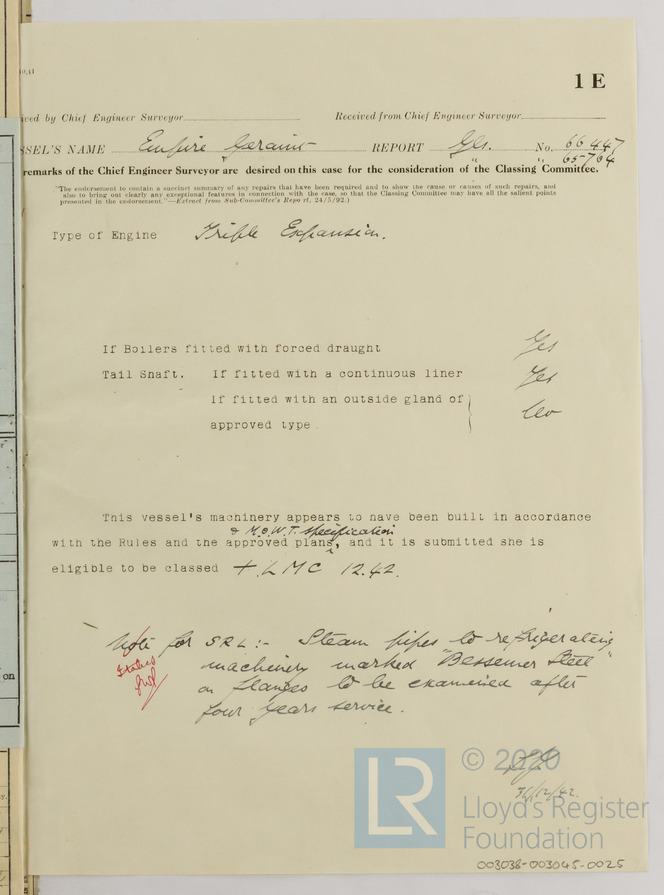 10,41
1 E
ived by Chief Engineer Surveyor Received from Chief Engineer Surveyor
SSEL'S NAME Empire Geraint REPORT Gls. No. 66447
65764
remarks of the Chief Engineer Surveyor are desired on this case for the consideration of the Classing Committee.
"The endorsement to contain a succinct summary of any repairs that have been required and to show the cause or causes of such repairs, and
also to bring out clearly any exceptional features in connection with the case, so that the Classing Committee may have all the salient points
presented in the endorsement."—Extract from Sub-Committee's Report, 24/5/92.)
Type of Engine Triple Expansion.
If Boilers fitted with forced draught Yes
Tail Shaft. If fitted with a continuous liner Yes
If fitted with an outside gland of
approved type No
This vessel's machinery appears to have been built in accordance
& M.O.W.T. specification
with the Rules and the approved plans, and it is submitted she is
eligible to be classed + LMC 12.42.
Note for SRL:- Steam pipes to refrigerating
machinery marked "Bessemer Steel"
on flanges to be examined after
four years service.
on
LR
© 2020
Lloyd's Register
Foundation
003038-003045-0025